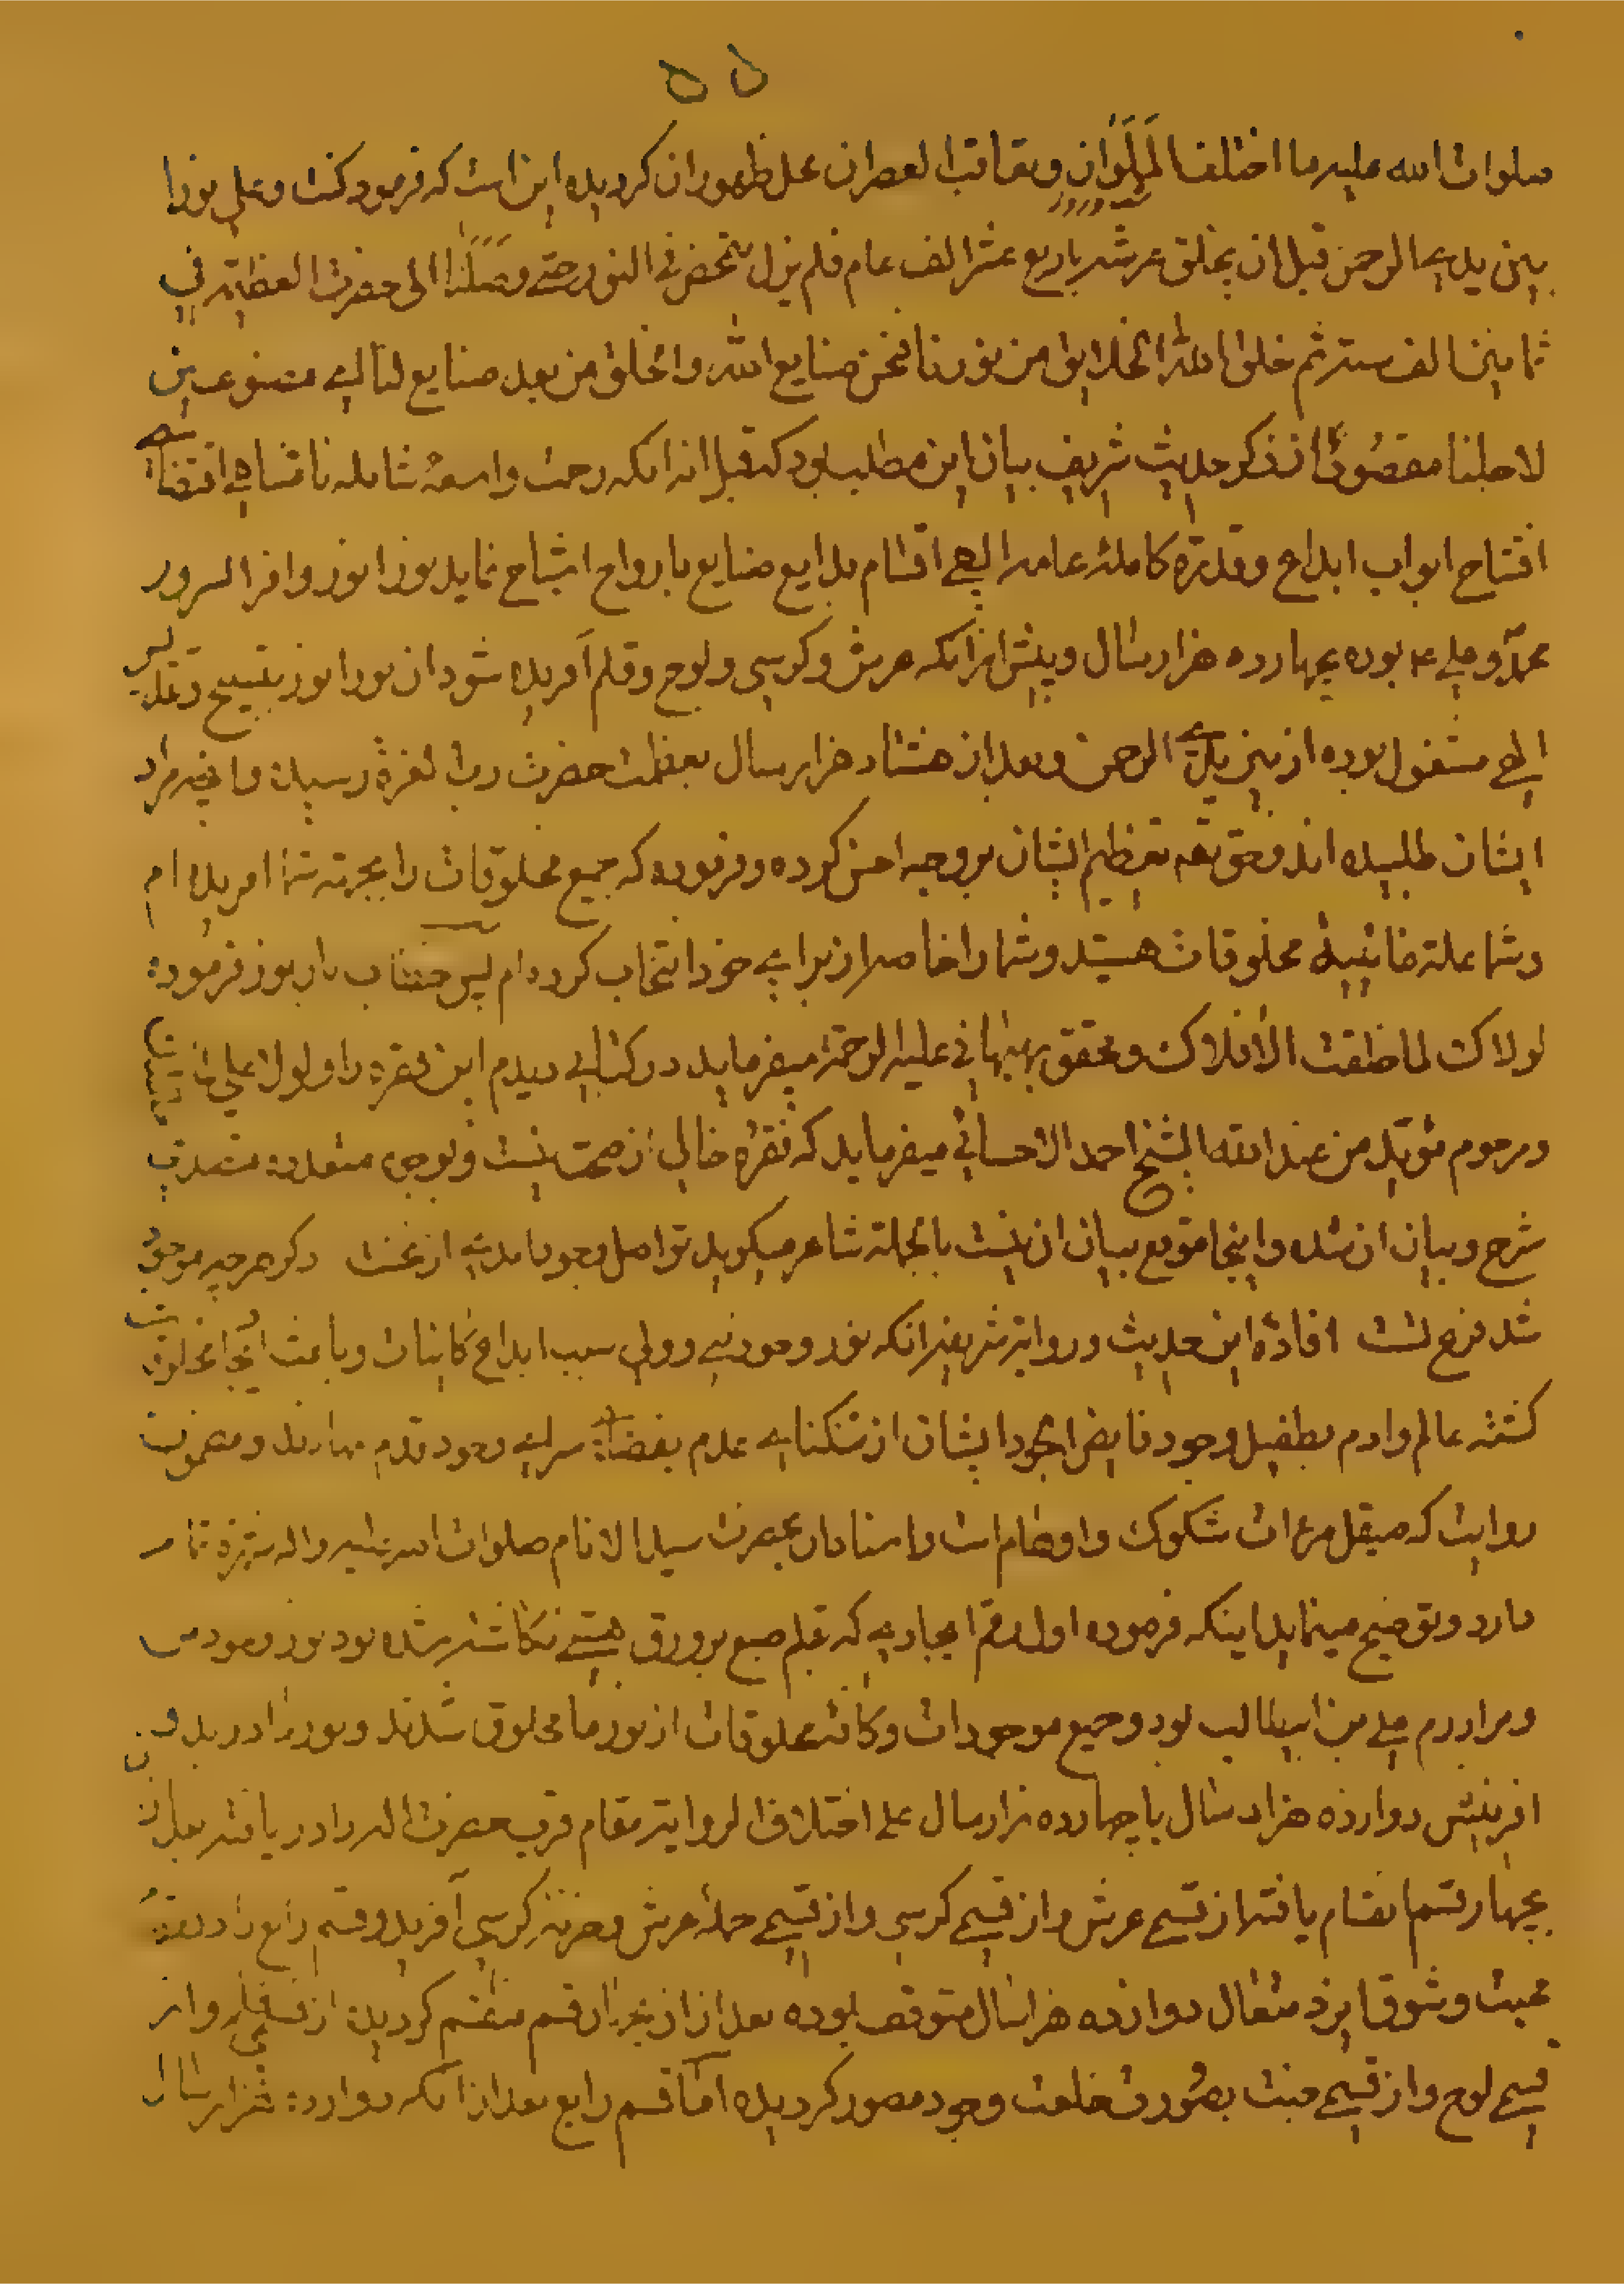 ۵۵
صلوات الله علیه ما اختلف المَلَوان وتعاقب العصران محل ظهور ان کردیده این است که فرمود کنت وعلی نورا
بین یدی الرحمن قبل ان یخلق عرشه باربع عشر الف عام فلم یزل نتمحض فی النور حتی وصلنا الی حضرت العظمة فی
ثمانین الف سنه ثم خلق الله الخلایق من نورنا فنحن صنایع الله والخلق من بعد صنایع لنا ای مصنوعین
لاجلنا مقصود از ذکر حدیث شریف بیان این مطلب بود که قبل از انکه رحمت واسعهٔ شامله نامتناهی اقتضای
افتتاح ابواب ابداع وقدرة کاملهٔ عامه الهی اقسام بدایع صنایع بارواح اشباح نماید نور انور وافر السرور
محمد وعلی ع بوده بچهارده هزار سال وپیش از انکه عرش وکرسی ولوح وقلم آفریده شود ان نور انور بتسبیح وتقدیس
الهی مشغول بوده از بین یدی الرحمن وبعد از هشتاد هزار سال بعظمت حضرت رب العزة رسیدن وانچه مراد
ایشان طلبیده اند وحق تعه تعظیم ایشان بر وجه احسن کرده وفرموده که جمیع مخلوقات را بجهته شما آفریده ام
وشما علة غائیهٔ مخلوقات هستید وشما را خاصه از برای خود انتخاب کرده ام پس خطاب بان نور فرموده
لولاک لما خلقت الافلاک ومحقق بهبهانی علیه الرحمة میفرماید در کتابی دیدم این فقره را ولولا علی لما خلقتک
ومرحوم مؤید من عند الله الشیخ احمد الاحسائی میفرماید که فقره خالی از صحت نیست وبوجوه متعدده متصدی
شرح وبیان ان شده واینجا موقع بیان ان نیست بالجمله شاعر میکوید تو اصل وجود امدی از نخست دکر هرچه موجود
شد فرع تست افادهٔ این حدیث وروایة شریفه انکه نور وجود نبی وولی سبب ابداع کاینات وباعث ایجاد مخلوقات
کشته عالم وادم بطفیل وجود فایض الجود ایشان از تنکنای عدم بفضای سرای وجود قدم نهادند ومضمون
روایت که صیقل مرءات شکوک واوهام است وامتنادان بحضرت سید الانام صلوات الله علیه واله شهرة تمام
دارد وتوضیح مینماید اینکه فرموده اول رقم ایجادی که قلم صنع بر ورق هستی نکاشته شده بود نور وجود من
ومرادرم علی بن ابیطالب بود وجمیع موجودات وکافه مخلوقات از نور ما مخلوق شدند ونور ما در بدو
افرینش دوازده هزار سال یا چهارده هزار سال علی اختلاف الروایة مقام قرب حضرت اله را دریافته بعد از ان
بچهار قسم انقسام یافته از قسمی عرش واز قسمی کرسی واز قسمی حملهٔ عرش وخزنه کرسی آفرید وقسم رابع را در
محبت وشوق ایزد متعال دوازده هزار سال متوقف بوده بعد از ان بچهار قسم منقسم کردیده از قسمی قلم واز
قسمی لوح واز قسمی جنت بصورت خلعت وجود مصور کردیده اما قسم رابع بعد از انکه دوازده هزار سال